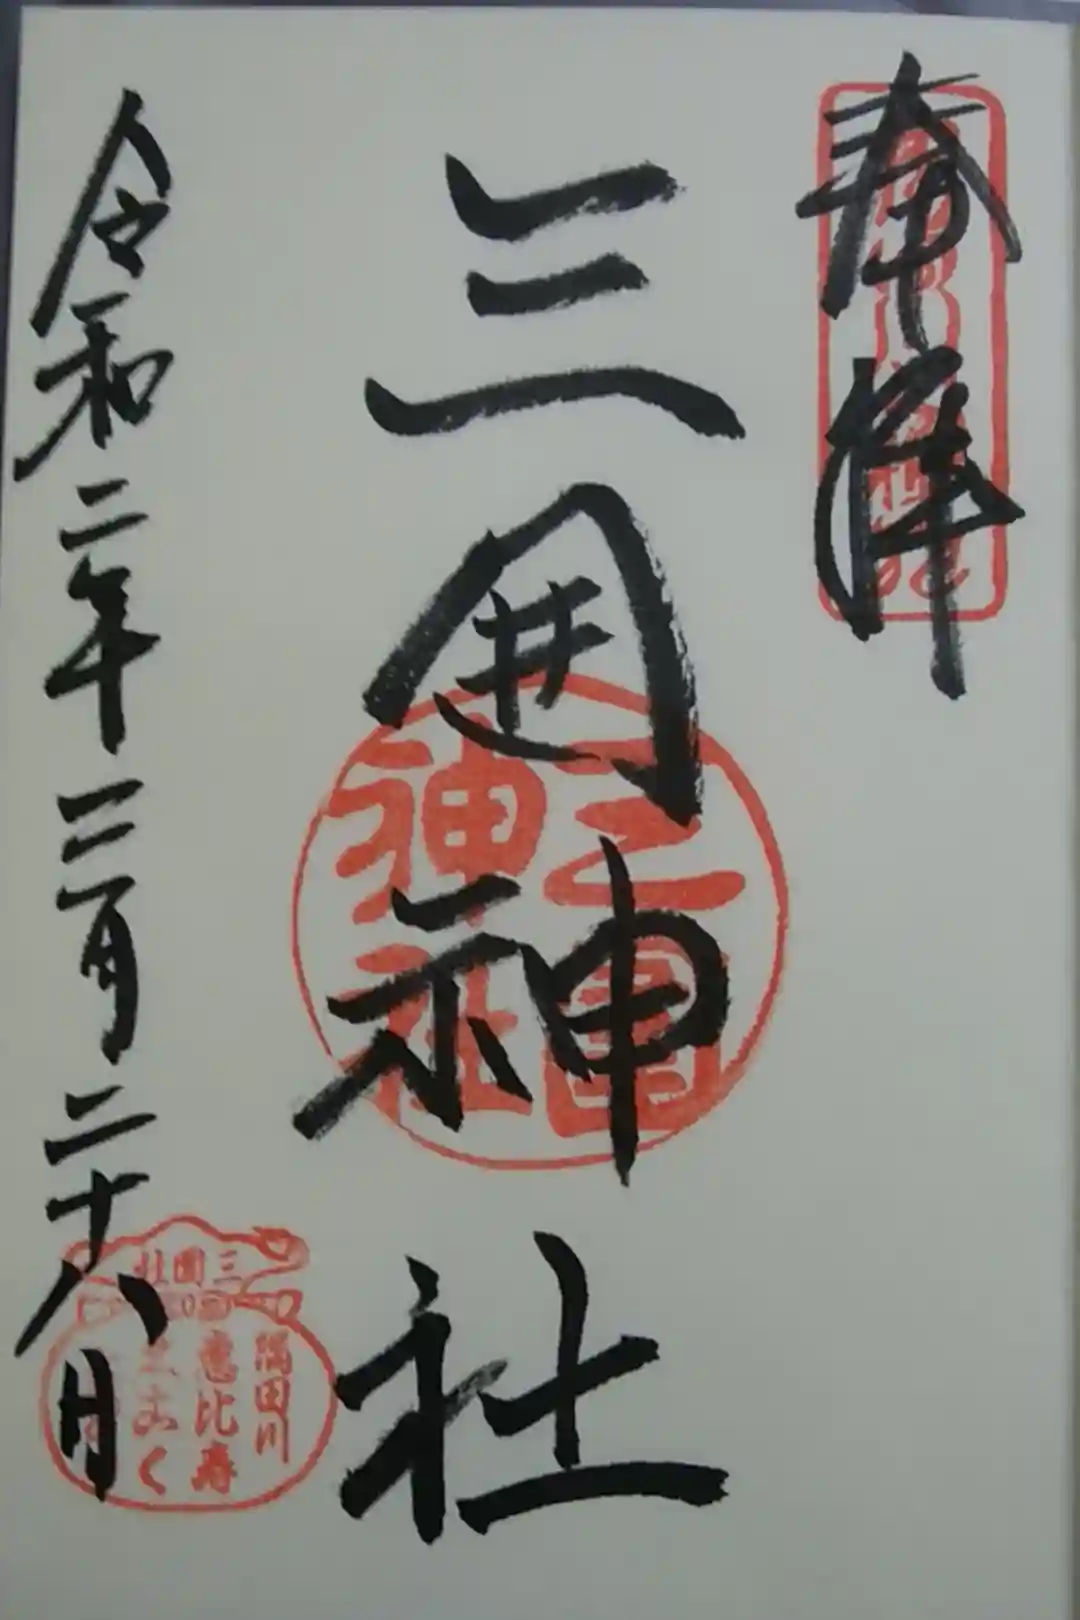 奉拝
三囲神社
三圍
神社
令和二年三月二十八日
三圍社
隅田川
恵比寿